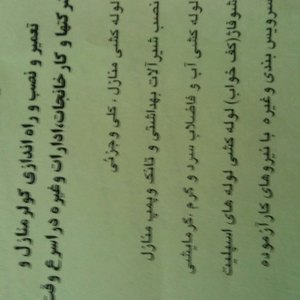 تعمیر و نصب و راه اندازی کولر منازل و
شرکتها و کارخانجات،ادارات وغیره در اسرع وقت
لوله کشی منازل ، کلی وجزئی
نصب شیرآلات بهداشتی و تانک وپمپ منازل
لوله کشی آب و فاضلاب سرد و گرم ،گرمایشی
شوفاژ(کف خواب) لوله کشی لوله های اسپلیت
سرویس بندی وغیره با نیروهای کارآزموده